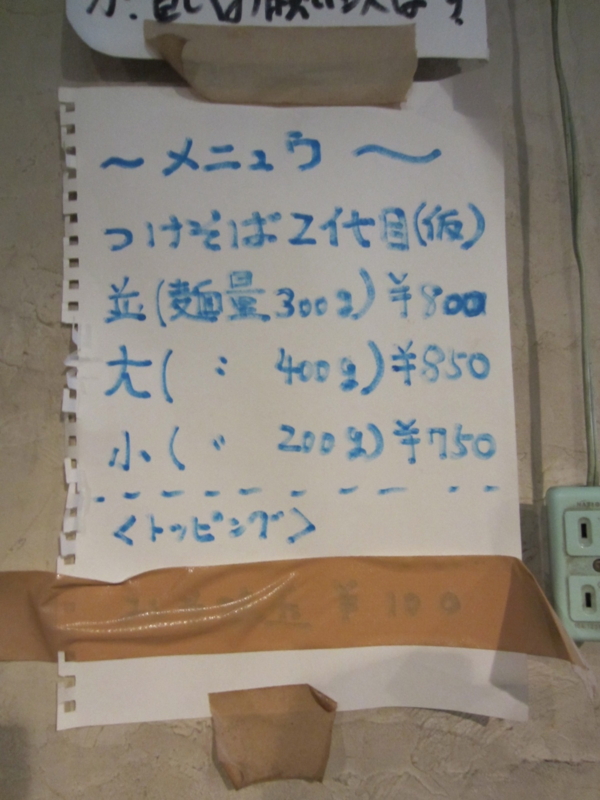 ～メニュウ～
つけそば2代目(仮)
並(麺量300g)¥800
大(〃 400g)¥850
小(〃 200g)¥750
<トッピング>
玉¥100